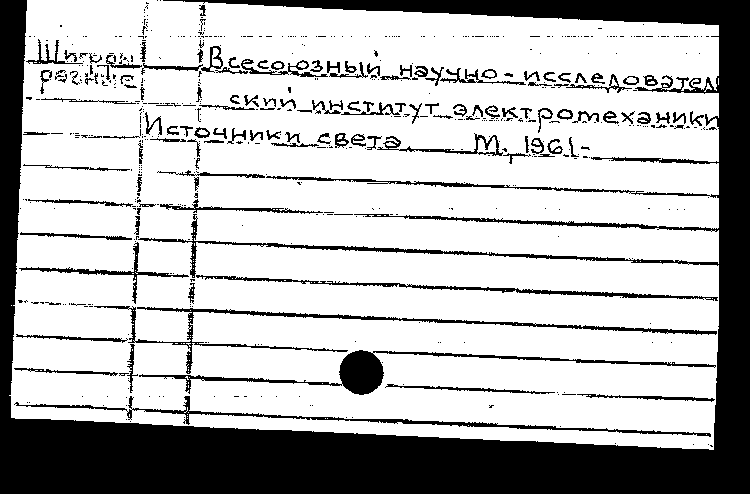 Шифры разные
Всесоюзный научно-исследователь
ский институт электромеханики
Источники света. М., 1961-